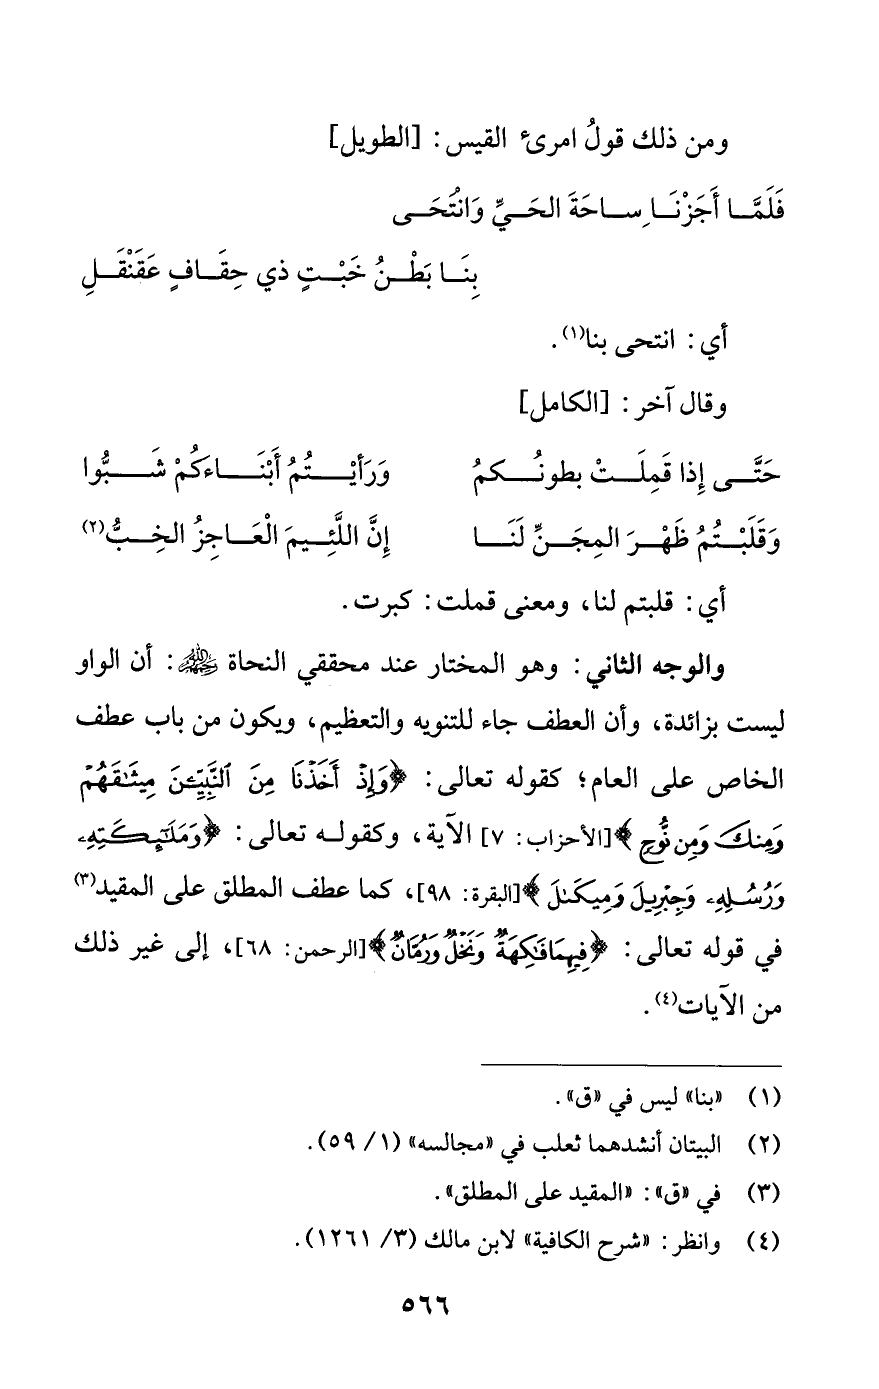 ومن ذلك قولُ امرىء القيس: [الطويل]
فَلَمَّا أَجَزْنَا سَاحَةَ الحَيِّ وَانْتُحَى
بِنَا بَطْنُ خَبْتٍ ذي حِقَافٍ عَقَنْقَلِ
أي: انتحى بنا(١).
وقال آخر: [الكامل]
حَتَّى إِذا قَمِلَتْ بطونُكمُ وَرَأيْتُمُ أَبْنَاءكُمْ شَبُّوا
وَقَلَبْتُمُ ظَهْرَ المِجَنِّ لَنَا إِنَّ اللَّئِيمَ الْعَاجِزُ الخِبُّ(٢)
أي: قلبتم لنا، ومعنى قملت: كبرت.
والوجه الثاني: وهو المختار عند محققي النحاة رحمهم الله: أن الواو
ليست بزائدة، وأن العطف جاء للتنويه والتعظيم، ويكون من باب عطف
الخاص على العام؛ كقوله تعالى: ﴿وَإِذْ أَخَذْنَا مِنَ ٱلنَّبِيِّـۧنَ مِيثَٰقَهُمْ
وَمِنكَ وَمِن نُّوحٍ﴾[الأحزاب: ٧] الآية، وكقوله تعالى: ﴿وَمَلَٰٓئِكَتِهِۦ
وَرُسُلِهِۦ وَجِبْرِيلَ وَمِيكَىٰلَ﴾[البقرة: ٩٨]، كما عطف المطلق على المقيد(٣)
في قوله تعالى: ﴿فِيهِمَا فَٰكِهَةٌ وَنَخْلٌ وَرُمَّانٌ﴾[الرحمن: ٦٨]، إلى غير ذلك
من الآيات(٤).
(١) «بنا» ليس في «ق».
(٢) البيتان أنشدهما ثعلب في «مجالسه» (١/ ٥٩).
(٣) في «ق»: «المقيد على المطلق».
(٤) وانظر: «شرح الكافية» لابن مالك (٣/ ١٢٦١).
٥٦٦